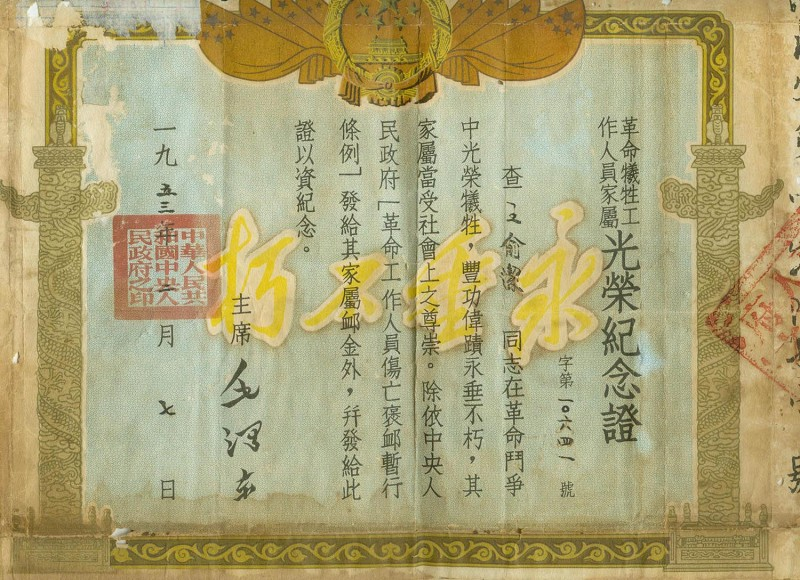 革命犧牲工
作人員家屬
光榮紀念證
字第一〇六四一號
查王俞潔同志在革命鬥爭
中光榮犧牲，豐功偉蹟永垂不朽，其
家屬當受社會上之尊崇。除依中央人
民政府「革命工作人員傷亡褒卹暫行
條例」發給其家屬卹金外，幷發給此
證以資紀念。
主席 毛澤東
一九五三年三月七日
永垂不朽
中華人民共
和國中央人
民政府之印